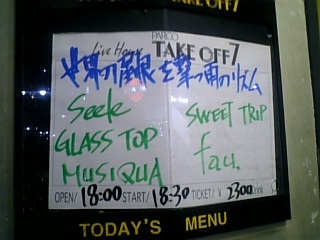 TAKE OFF7
PARCO
Live House TAKE OFF7
世界の屋根を撃つ雨のリズム
Seek
GLASS TOP
MUSIQUA
SWEET TRIP
fau.
OPEN/ 18:00 START/ 18:30 TICKET/¥ 2300 Drink
TODAY'S MENU